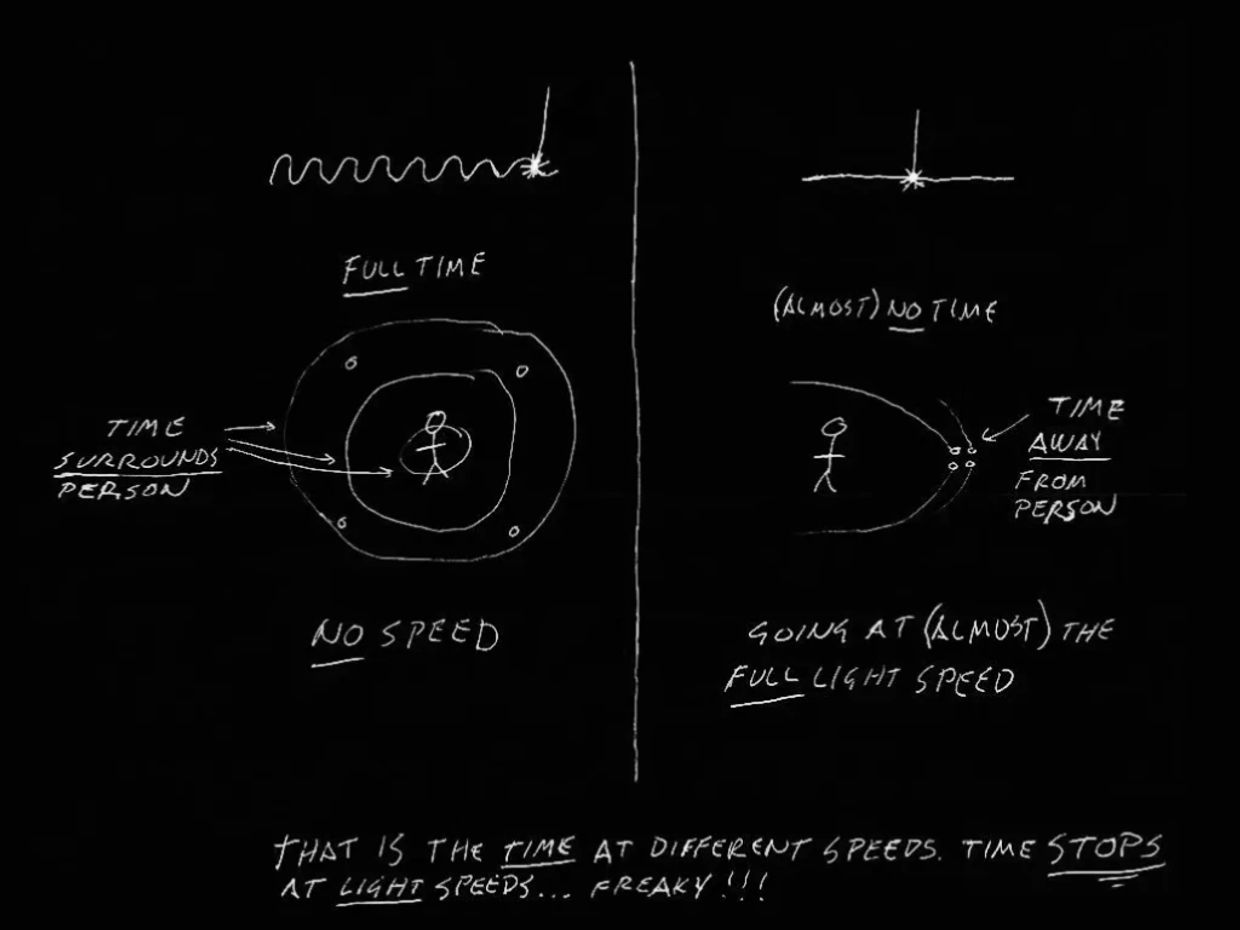 FULL TIME
TIME
SURROUNDS
PERSON
NO SPEED
(ALMOST) NO TIME
TIME
AWAY
FROM
PERSON
GOING AT (ALMOST) THE
FULL LIGHT SPEED
THAT IS THE TIME AT DIFFERENT SPEEDS. TIME STOPS
AT LIGHT SPEEDS... FREAKY!!!